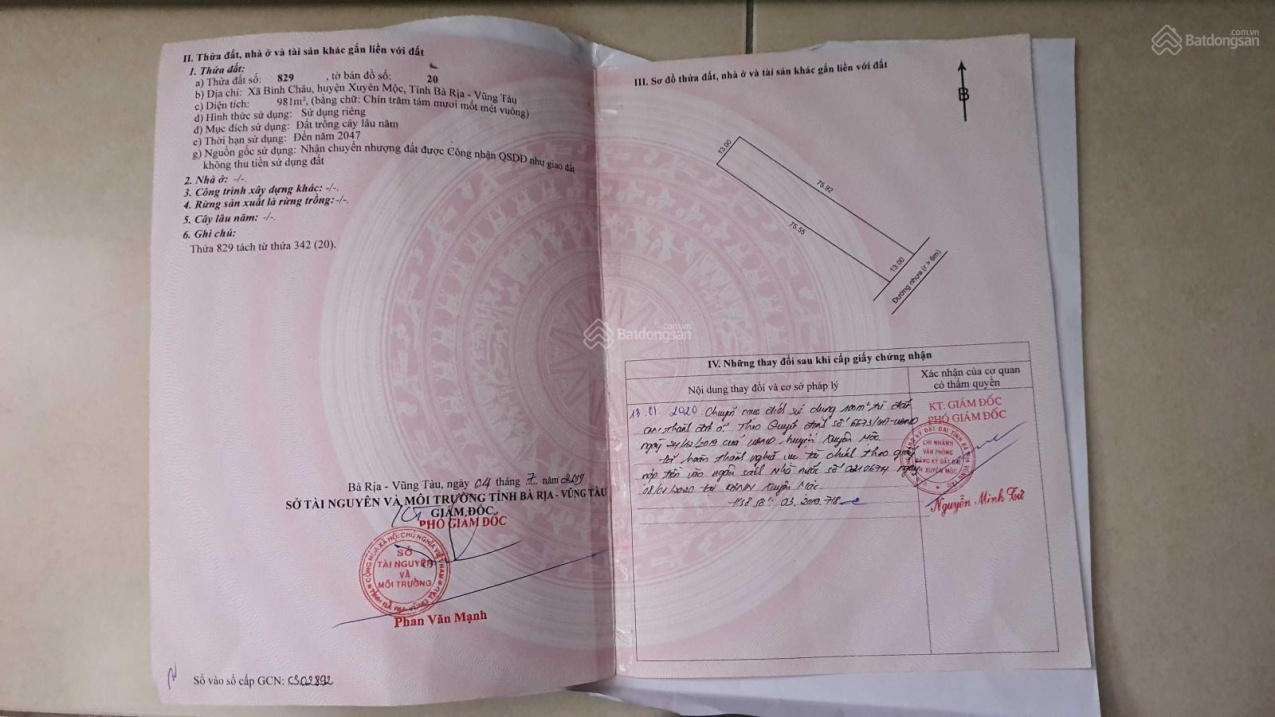 II. Thửa đất, nhà ở và tài sản khác gắn liền với đất
1. Thửa đất:
a) Thửa đất số: 829 , tờ bản đồ số: 20
b) Địa chỉ: Xã Bình Châu, huyện Xuyên Mộc, Tỉnh Bà Rịa - Vũng Tàu
c) Diện tích: 981m², (bằng chữ: Chín trăm tám mươi mốt mét vuông)
d) Hình thức sử dụng: Sử dụng riêng
đ) Mục đích sử dụng: Đất trồng cây lâu năm
e) Thời hạn sử dụng: Đến năm 2047
g) Nguồn gốc sử dụng: Nhận chuyển nhượng đất được Công nhận QSDĐ như giao đất
không thu tiền sử dụng đất
2. Nhà ở: -/-.
3. Công trình xây dựng khác: -/-.
4. Rừng sản xuất là rừng trồng: -/-.
5. Cây lâu năm: -/-.
6. Ghi chú:
Thửa 829 tách từ thửa 342 (20).
Bà Rịa - Vũng Tàu, ngày 04 tháng 7 năm 2019
SỞ TÀI NGUYÊN VÀ MÔI TRƯỜNG TỈNH BÀ RỊA - VŨNG TÀU
GIÁM ĐỐC
PHÓ GIÁM ĐỐC
CỘNG HÒA XÃ HỘI CHỦ NGHĨA VIỆT NAM
SỞ
TÀI NGUYÊN
VÀ
MÔI TRƯỜNG
TỈNH BÀ RỊA VŨNG TÀU
Phan Văn Mạnh
Số vào sổ cấp GCN: CS02892
III. Sơ đồ thửa đất, nhà ở và tài sản khác gắn liền với đất
B
13.00
75.92
75.55
13.00
Đường nhựa (r > 6m)
IV. Những thay đổi sau khi cấp giấy chứng nhận
Nội dung thay đổi và cơ sở pháp lý
Xác nhận của cơ quan
có thẩm quyền
2020 Chuyển mục đích sử dụng từ đất
Theo Quyết định số 6673/QĐ-UBND
ngày của UBND huyện Xuyên Mộc
Đã hoàn thành nghĩa vụ tài chính theo giấy
nộp tiền vào ngân sách Nhà nước số ngày
08/01/2020 tại KBNN Xuyên Mộc.
KT. GIÁM ĐỐC
PHÓ GIÁM ĐỐC
CHI NHÁNH
VĂN PHÒNG
ĐĂNG KÝ ĐẤT ĐAI
XUYÊN MỘC
Nguyễn Minh Tứ
Batdongsan
.com.vn
Batdongsan
.com.vn